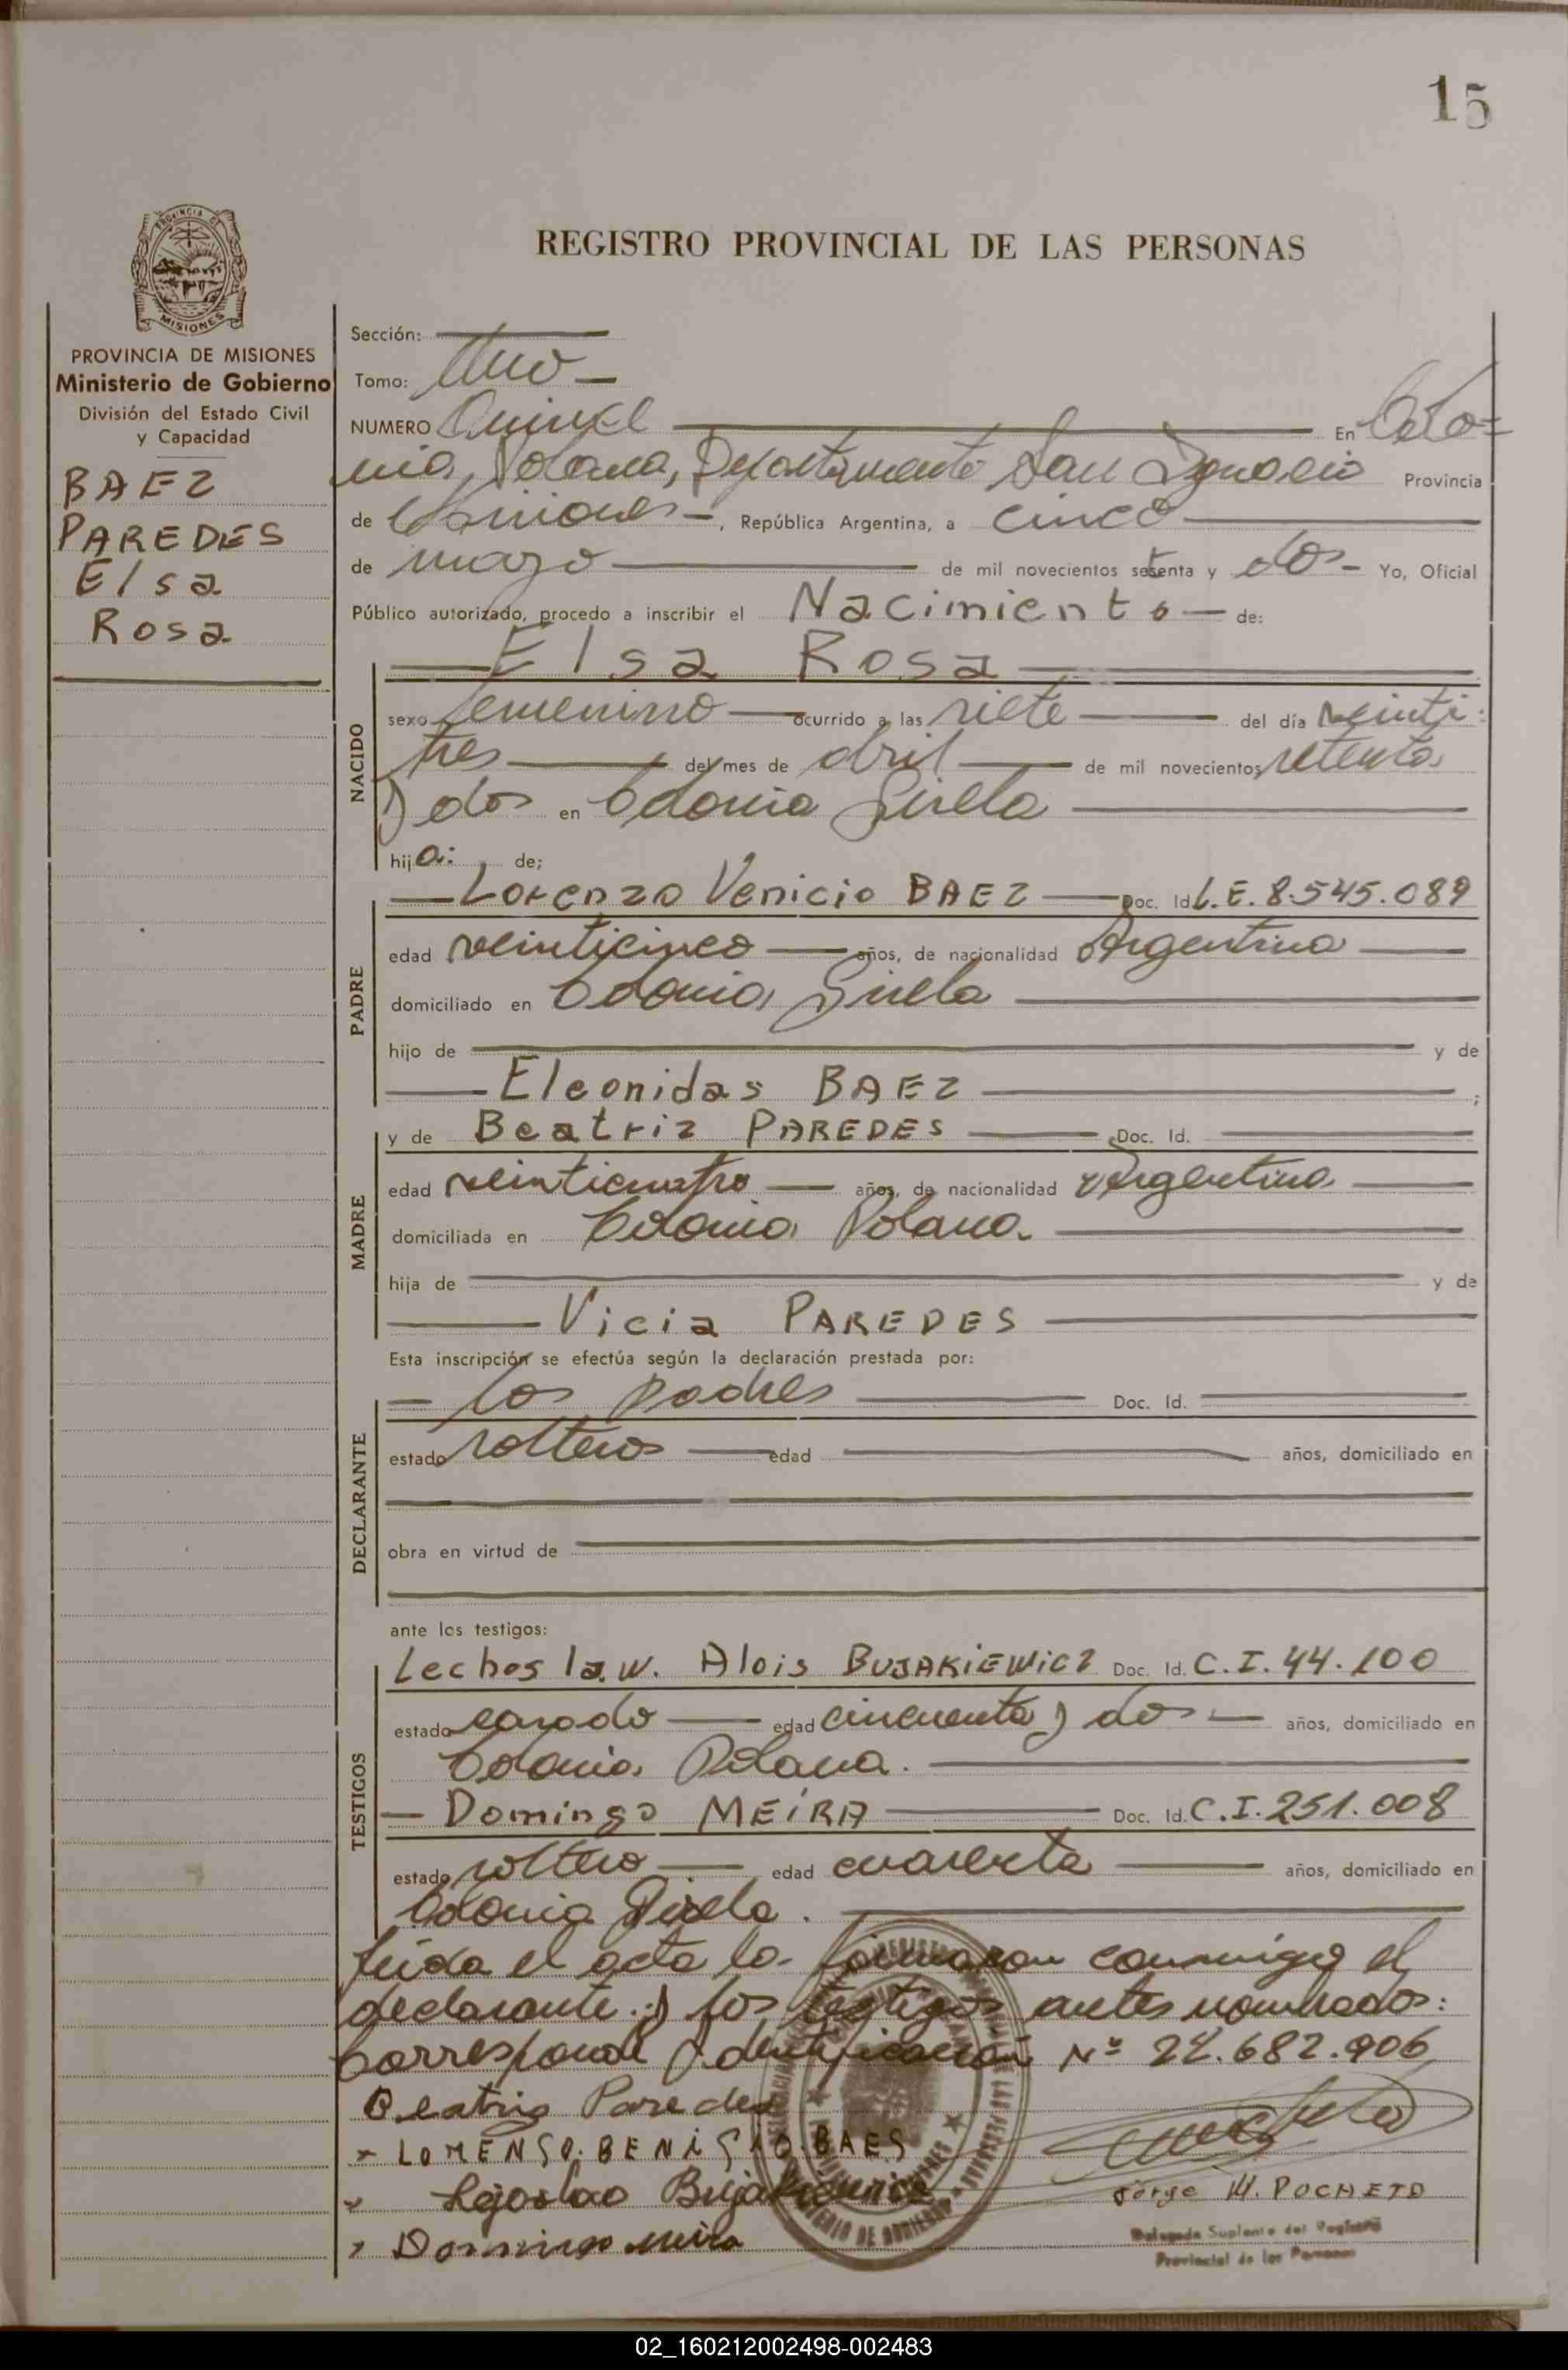 15
PROVINCIA DE
MISIONES
REGISTRO PROVINCIAL DE LAS PERSONAS
PROVINCIA DE MISIONES
Ministerio de Gobierno
División del Estado Civil
y Capacidad
BAEZ
PAREDES
Elsa
Rosa
Sección:
Tomo: Uno
NUMERO Quince En Colo=
nia Polana, Departamento San Ignacio Provincia
de Misiones, República Argentina, a cinco
de mayo de mil novecientos setenta y dos Yo, Oficial
Público autorizado, procedo a inscribir el Nacimiento de:
Elsa Rosa
NACIDO
sexo femenino ocurrido a las siete del día veinti-
tres del mes de abril de mil novecientos setenta
y dos en Colonia Gisela
hija: de;
Lorenzo Venicio BAEZ Doc. Id L.E. 8.545.089
PADRE
edad veinticinco años, de nacionalidad Argentina
domiciliado en Colonia Gisela
hijo de y de
Eleonidas BAEZ ;
y de Beatriz PAREDES Doc. Id.
MADRE
edad veinticuatro años, de nacionalidad Argentina
domiciliada en Colonia Polana.
hija de y de
Vicia PAREDES
Esta inscripción se efectúa según la declaración prestada por:
los padres Doc. Id.
DECLARANTE
estado solteros edad años, domiciliado en
obra en virtud de
ante los testigos:
Lechoslaw. Alois BUJAKIEWICZ Doc. Id. C.I. 44.100
TESTIGOS
estado casado edad cincuenta y dos años, domiciliado en
Colonia Polana.
Domingo MEIRA Doc. Id. C.I. 251.008
estado soltero edad cuarenta años, domiciliado en
Colonia Gisela.
Leída el acta la firmaron conmigo el
declarante. y los testigos antes nombrados:
Corresponde Identificación Nº 22.682.906
Beatriz Paredes
LORENSO. BENIGNO. BAES
Bujakiewicz
Domingo Meira
Jorge M. POCHETO
Delegado Suplente del Registro
Provincial de las Personas
02_160212002498-002483